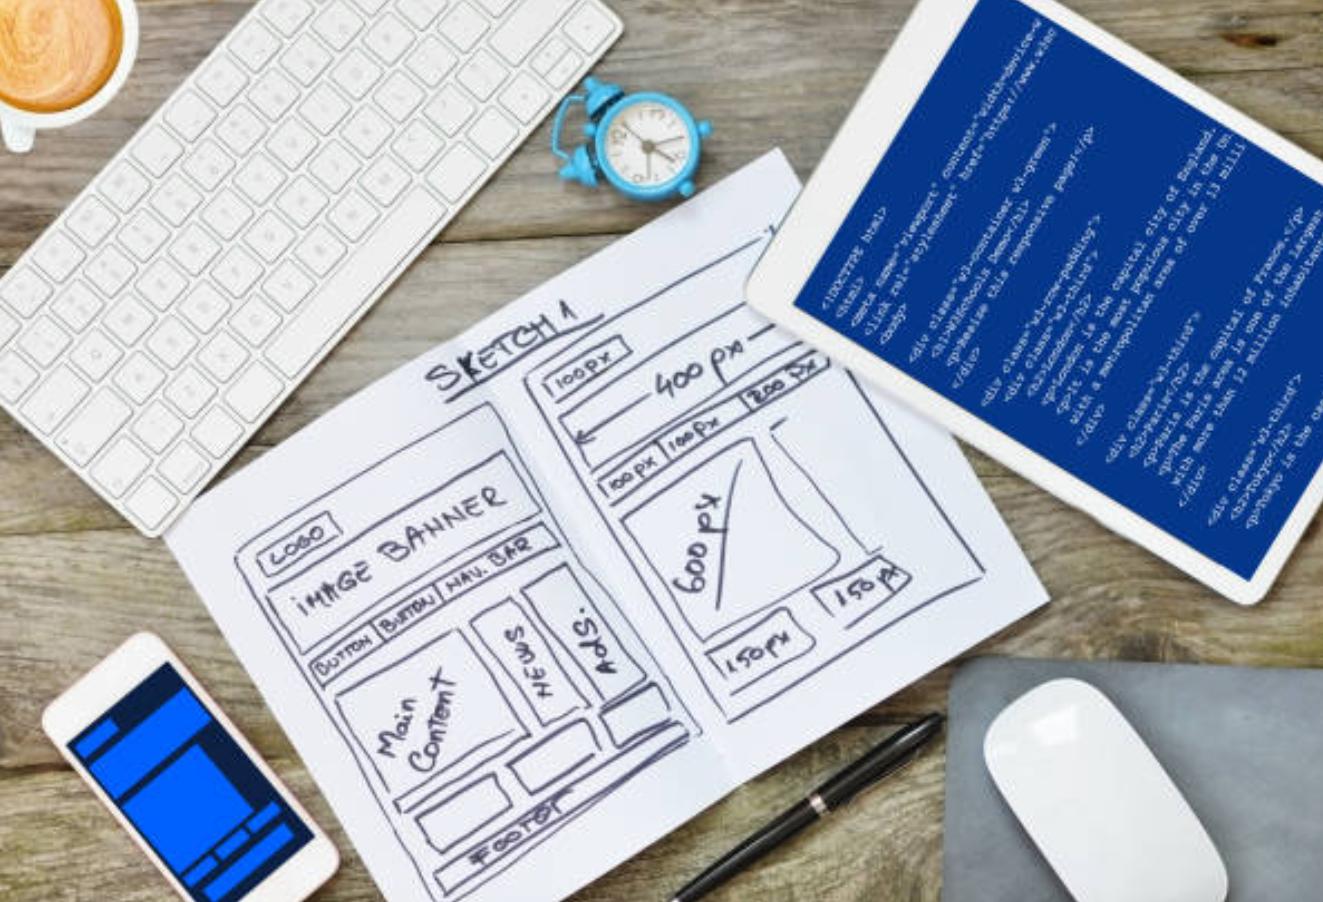 SKETCH 1
LOGO
IMAGE BANNER
BUTTON BUTTON NAV. BAR
Main
Content
NEWS
AdS.
FOOTER
100PX
400 px
100PX 100PX 200 PX
600 px
150px
150 px
<!DOCTYPE html>
<html>
<meta name="viewport" content="width=device-w
<link rel="stylesheet" href="https://www.w3sc
<body>
<div class="w3-container w3-green">
<h1>W3Schools Demo</h1>
<p>Resize this responsive page!</p>
</div>
<div class="w3-row-padding">
<div class="w3-third">
<h2>London</h2>
<p>London is the capital city of England.
<p>It is the most populous city in the Un
with a metropolitan area of over 13 milli
</div>
<div class="w3-third">
<h2>Paris</h2>
<p>Paris is the capital of France.</p>
<p>The Paris area is one of the larges
with more than 12 million inhabitan
</div>
<div class="w3-third">
<h2>Tokyo</h2>
<p>Tokyo is the